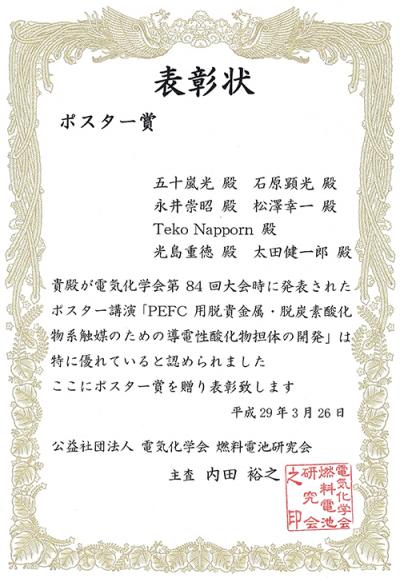 表彰状
ポスター賞
五十嵐光 殿 石原顕光 殿
永井崇昭 殿 松澤幸一 殿
Teko Napporn 殿
光島重徳 殿 太田健一郎 殿
貴殿が電気化学会第 84 回大会時に発表された
ポスター講演「PEFC 用脱貴金属・脱炭素酸化
物系触媒のための導電性酸化物担体の開発」は
特に優れていると認められました
ここにポスター賞を贈り表彰致します
平成 29 年 3 月 26 日
公益社団法人 電気化学会 燃料電池研究会
主査 内田 裕之
電気化学会
燃料電池
研究会
之印